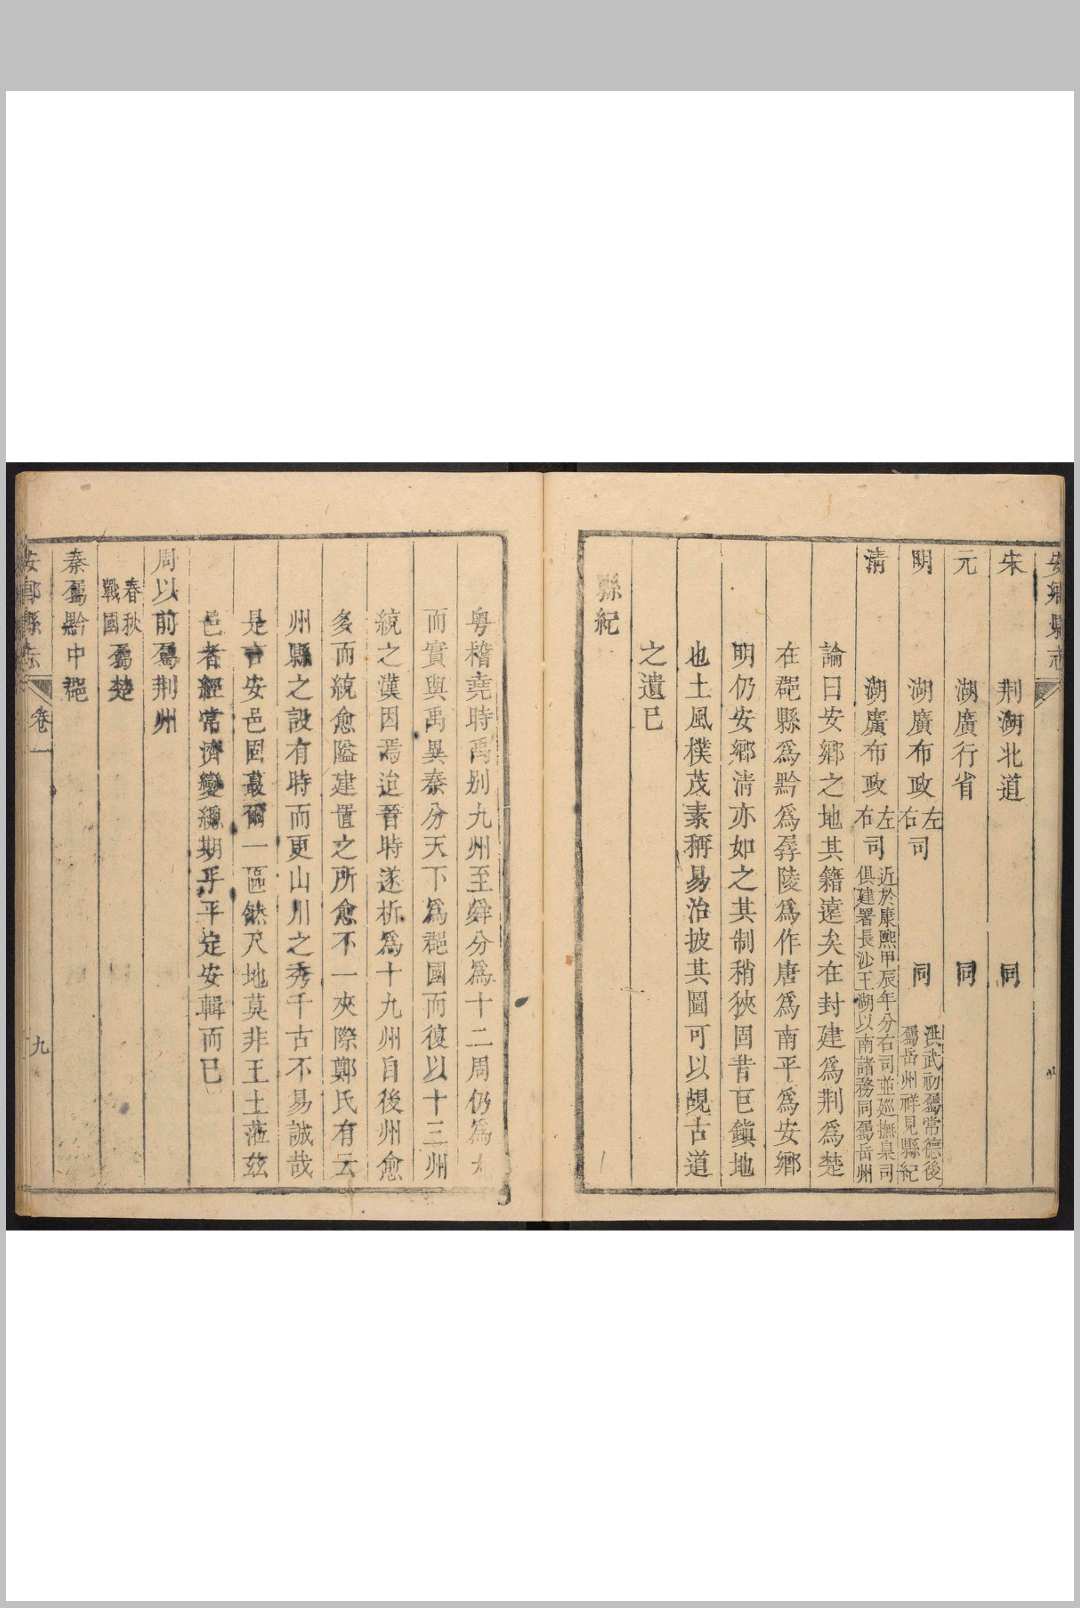 安鄉縣志
宋 荆湖北道 同
元 湖廣行省 同
明 湖廣布政左右司 同 洪武初屬常德後屬岳州祥見縣紀
清 湖廣布政左右司 近於康熙甲辰年分右司並廵撫臬司俱建署長沙王湖以南諸務同屬岳州
論曰安鄉之地其籍遠矣在封建爲荆爲楚
在郡縣爲黔爲孱陵爲作唐爲南平爲安鄉
明仍安鄉清亦如之其制稍狹固昔巨鎮地
也土風樸茂素稱易治披其圖可以覘古道
之遺已
縣紀
粤稽堯時禹别九州至舜分爲十二周仍爲九
而實與禹異秦分天下爲郡國而復以十三州
統之漢因焉迨晉時遂析爲十九州自後州愈
多而統愈隘建置之所愈不一夾際鄭氏有云
州縣之設有時而更山川之秀千古不易誠哉
是言安邑固蕞爾一區然尺地莫非王土蒞兹
邑者經常濟變總期乎平定安輯而已
周以前屬荆州
春秋戰國屬楚
秦屬黔中郡
安鄉縣志 卷一 九